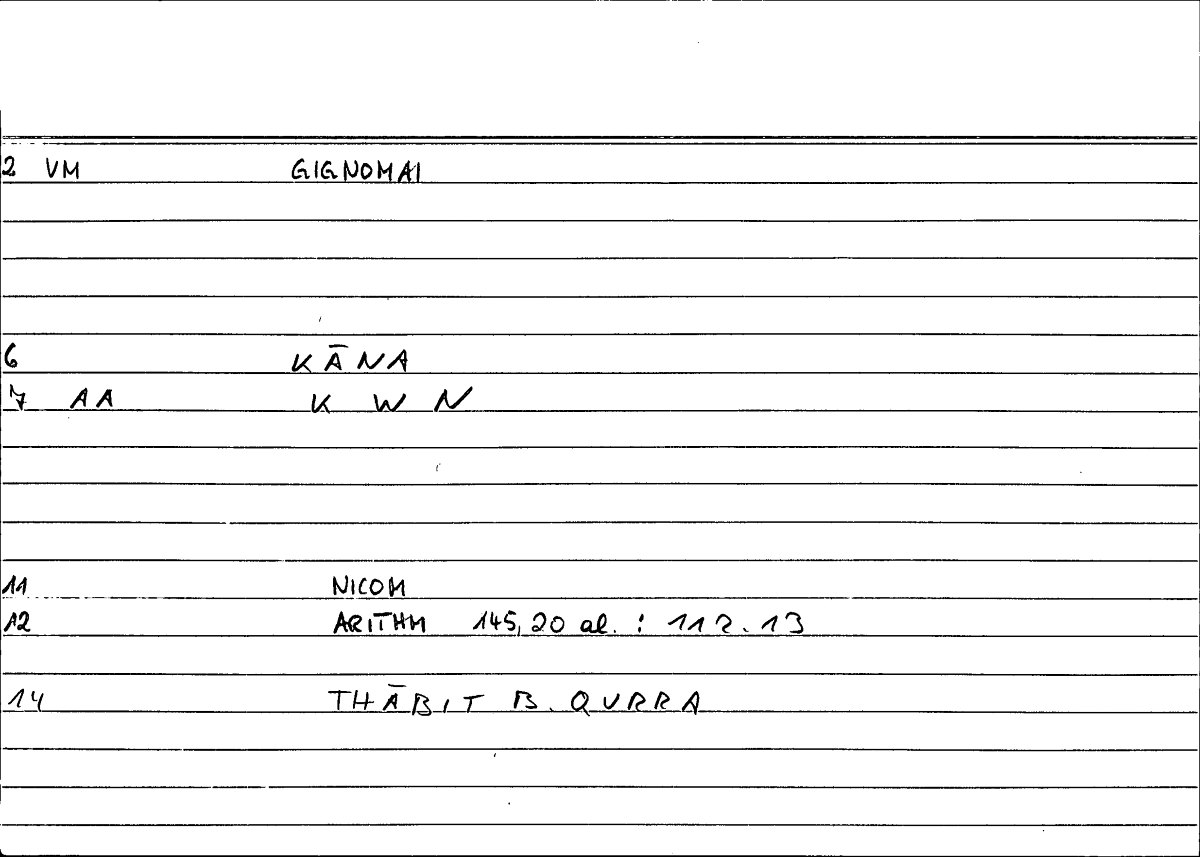 2 VM GIGNOMAI
6 KĀNA
7 AA K W N
11 NICOM
12 ARITHM 145,20 al. : 112.13
14 THĀBIT B. QURRA